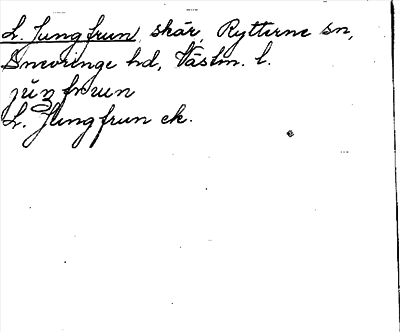 L. Jungfrun, skär, Rytterne sn,
Snevringe hd, Västm. l.
juŋfrun
L. Jungfrun ek.